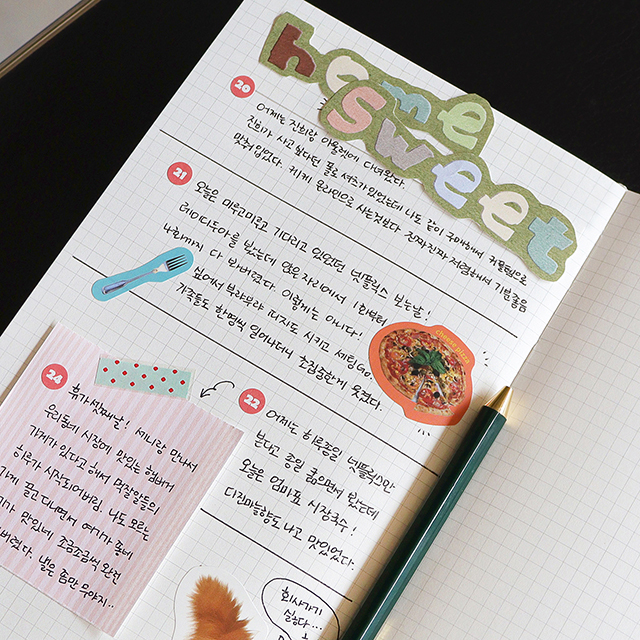 home
sweet
20
어제는 진희랑 아울렛에 다녀왔다.
진희가 사고 싶다던 폴로 셔츠가 있었는데 나도 같이 구매해서 커플템으로
맞춰 입었다. 키키 온라인으로 사는것보다 진짜진짜 저렴해서 기분좋음
21
오늘은 미루고미루고 기다리고 있었던 넷플릭스 보는날!
데이미도아를 봤는데 앉은 자리에서 1화부터
나화까지 다 봐버렸다. 이렇게는 아니다!
싶어서 부랴부랴 피자도 시키고 세팅 Go.
가족들도 한명씩 일어나더니 초집중한게 웃겼다.
cheese pizza
24
휴가 첫째날! 세니랑 만나서
우리동네 시장에 맛있는 햄버거
가게가 있다고 해서 먹잘알들의
하루가 시작되어버림. 나도 모르는
가게 끌고다니면서 여기가 좋네
기가 맛있네 조금조금씩 완전
버렸다. 낼은 좀만 무야지..
22
어제도 하루종일 넷플릭스만
본다고 종일 굶으면서 봤는데
오늘은 엄마표 시장국수!
디진마늘향도 나고 맛있었다.
회사가기
싫다...